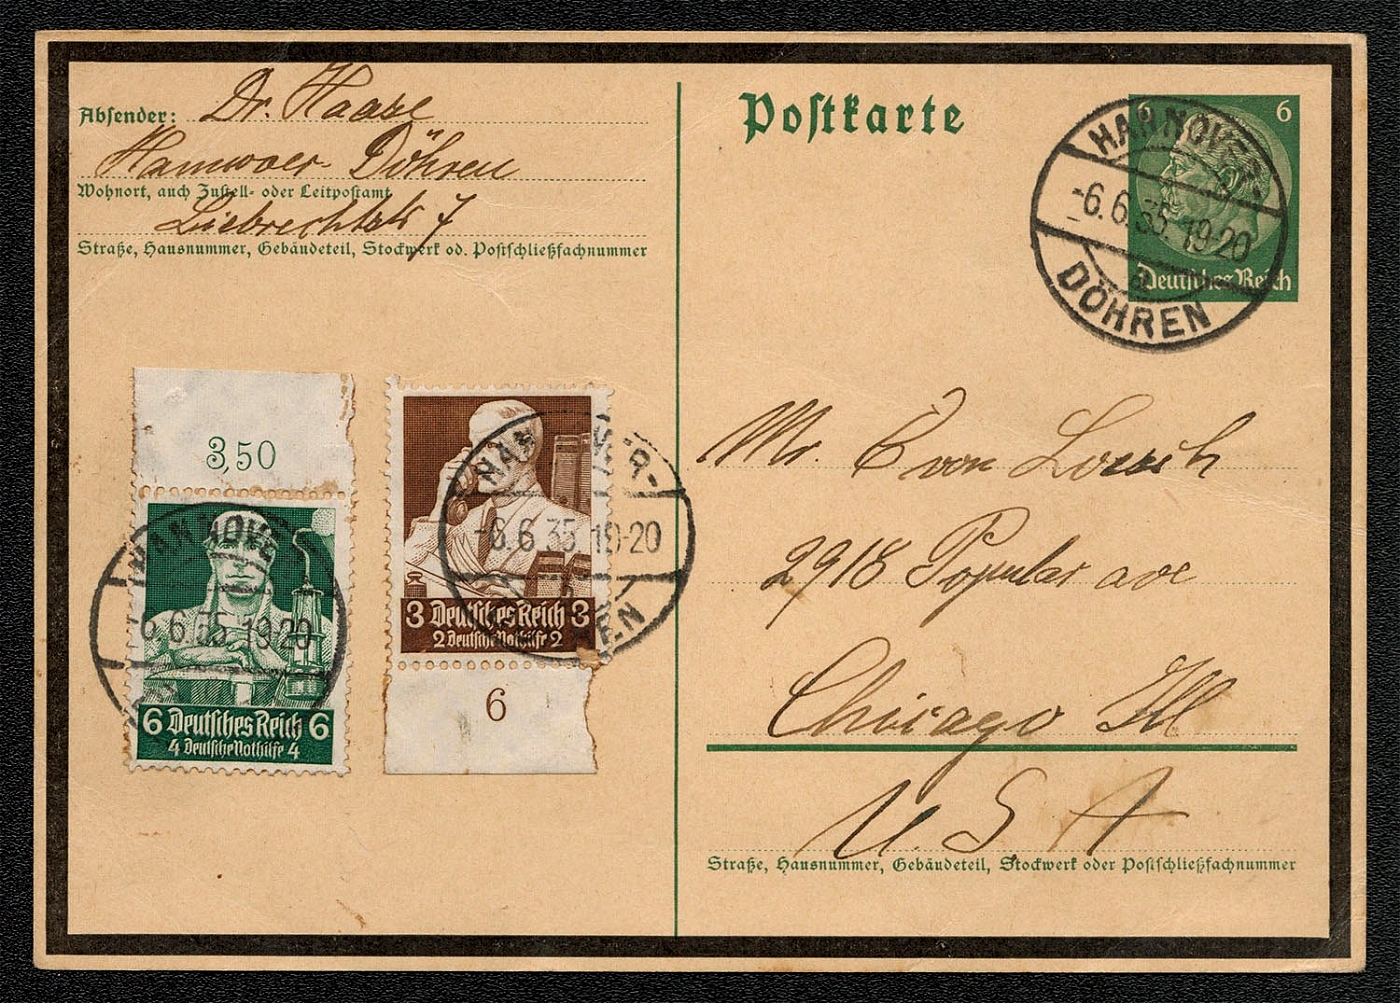 Absender: Dr. Haase
Hannover-Döhren
Wohnort, auch Zustell- oder Leitpostamt
Liebrechtstr 7
Straße, Hausnummer, Gebäudeteil, Stockwerk od. Postschließfachnummer
Postkarte
6 6
Deutsches Reich
HANNOVER-
-6.6.35.19-20
DÖHREN
3,50
HANNOVER-
-6.6.35.19-20
6 Deutsches Reich 6
4 Deutsche Nothilfe 4
HANNOVER-
-6.6.35.19-20
b
DÖHREN
3 Deutsches Reich 3
2 Deutsche Nothilfe 2
6
Mr. C von Loesch
2918 Popular ave
Chicago Ill
U. S. A
Straße, Hausnummer, Gebäudeteil, Stockwerk oder Postschließfachnummer